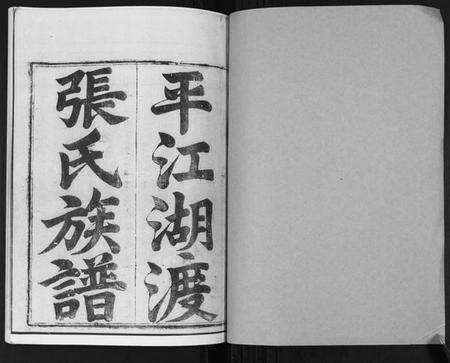 平江湖渡
張氏族譜